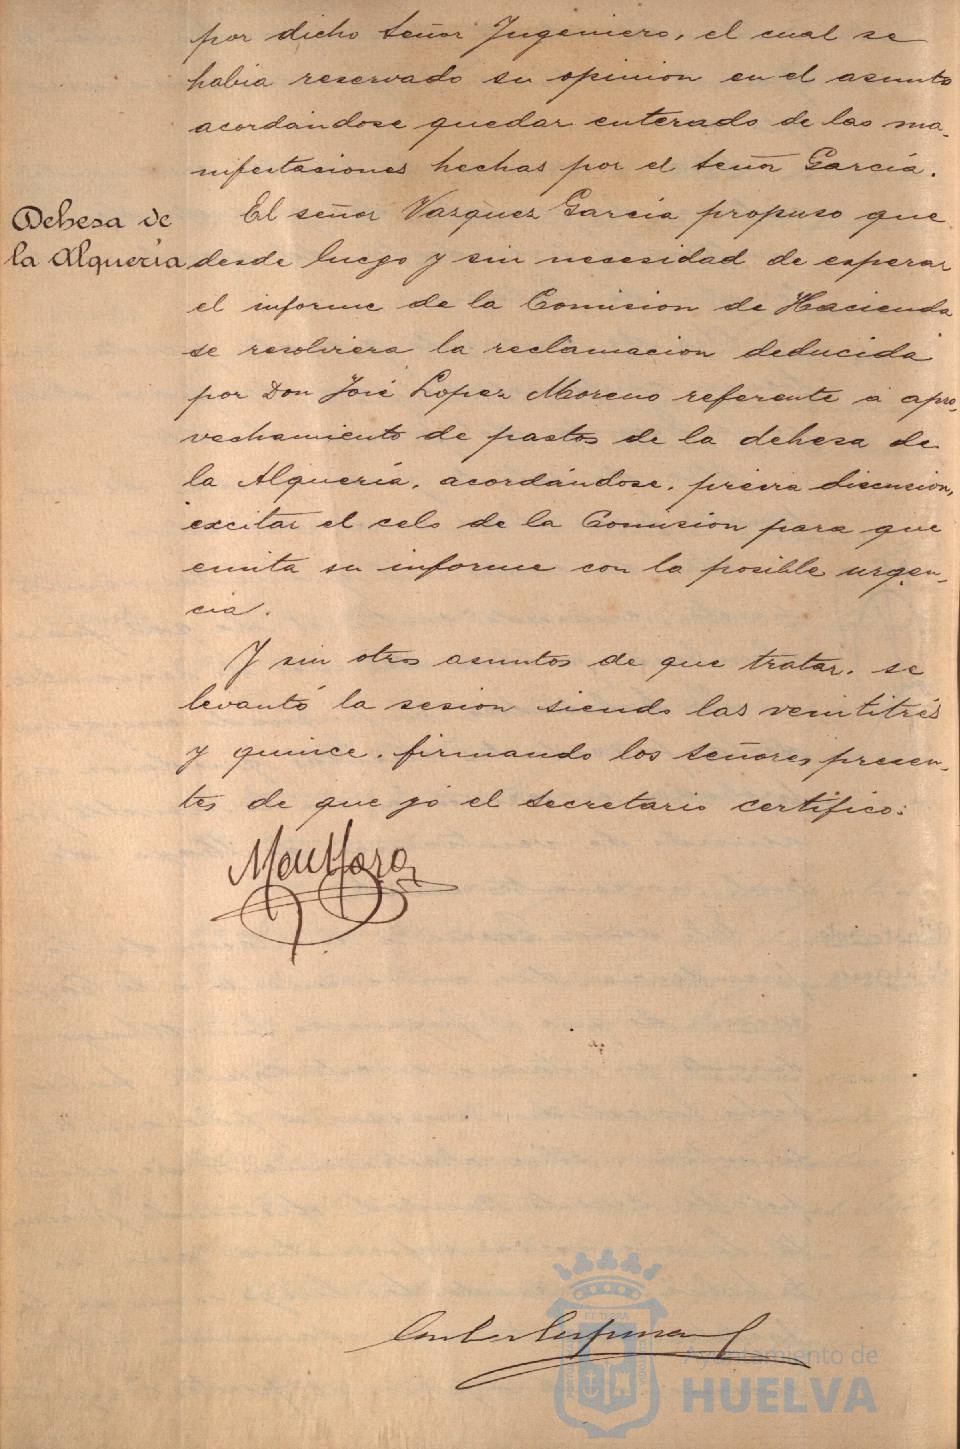 por dicho señor Ingeniero, el cual se
habia reservado su opinion en el asunto
acordándose quedar enterado de las ma-
nifestaciones hechas por el señor García.
Dehesa de
la Alquería
El señor Vazquez García propuso que
desde luego y sin necesidad de esperar
el informe de la Comision de Hacienda
se resolviera la reclamacion deducida
por Don José Lopez Moreno referente a apro-
vechamiento de pastos de la dehesa de
la Alquería, acordándose, previa discusion,
excitar el celo de la Comision para que
emita su informe con la posible urgen-
cia.
Y sin otros asuntos de que tratar, se
levantó la sesion siendo las veintitrés
y quince, firmando los señores presen-
tes de que yó el secretario certifico:
Ayuntamiento de
HUELVA